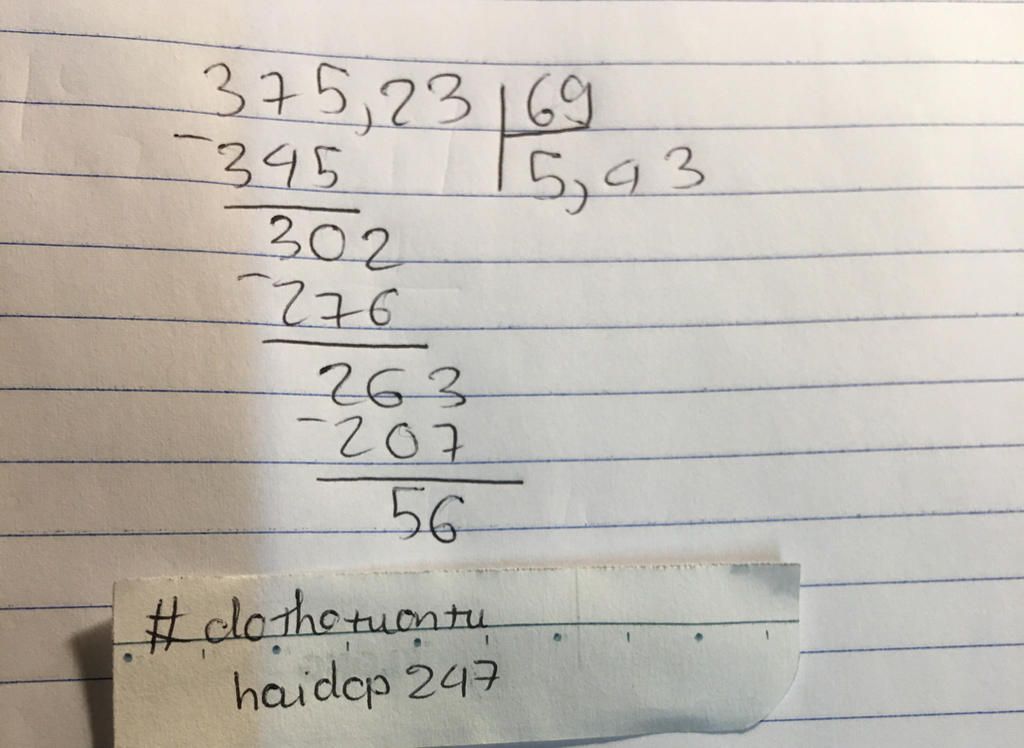 375,23 69
- 345 5,43
302
- 276
263
- 207
56
#dothotuontu
haidcp247